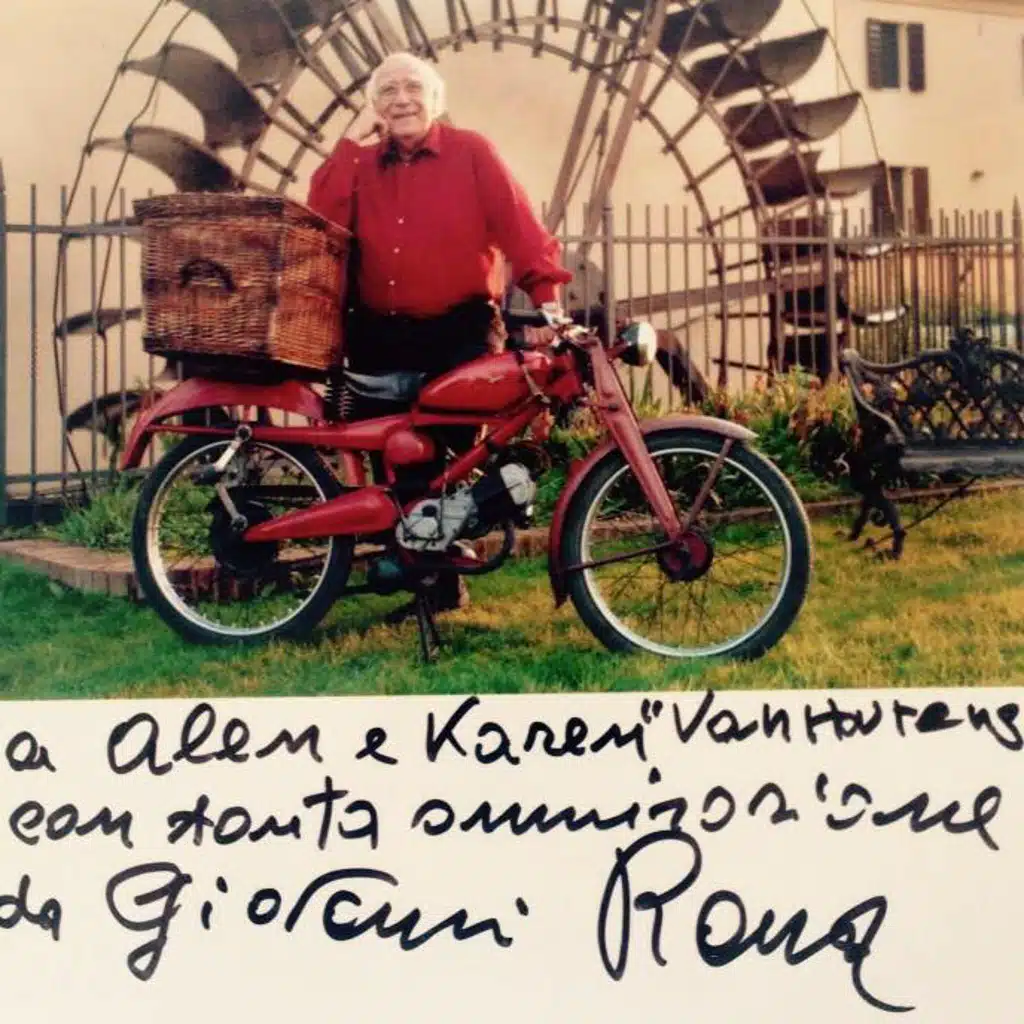 a Alen e Karen "Van Hourens
con tanta ammirazione
da Giovanni Rana